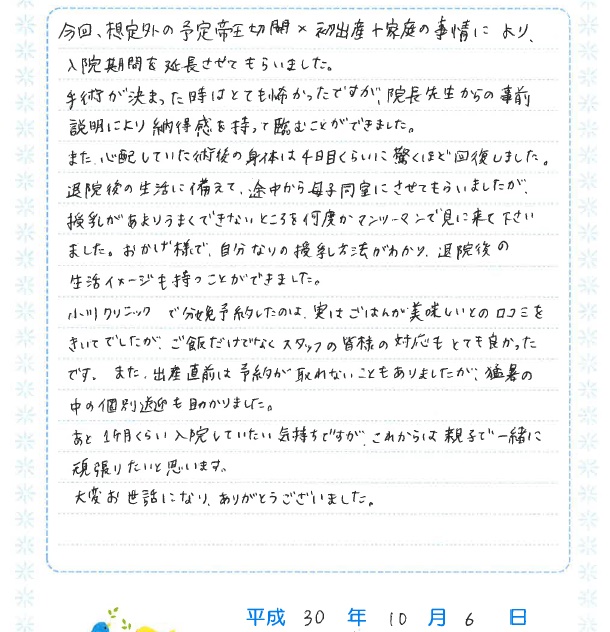 今回、想定外の予定帝王切開×初出産+家庭の事情により、
入院期間を延長させてもらいました。
手術が決まった時はとても怖かったですが、院長先生からの事前
説明により納得感を持って臨むことができました。
また、心配していた術後の身体は4日目くらいに驚くほど回復しました。
退院後の生活に備えて、途中から母子同室にさせてもらいましたが、
授乳があまりうまくできないところを何度かマンツーマンで見に来て下さい
ました。おかげ様で、自分なりの授乳方法がわかり、退院後の
生活イメージも持つことができました。
小川クリニックで分娩予約したのは、実はごはんが美味しいとの口コミを
きいてでしたが、ご飯だけでなくスタッフの皆様の対応もとても良かった
です。また、出産直前は予約が取れないこともありましたが、猛暑の
中の個別送迎も助かりました。
あと1ヶ月くらい入院していたい気持ちですが、これからは親子で一緒に
頑張りたいと思います。
大変お世話になり、ありがとうございました。
平成 30 年 10 月 6 日